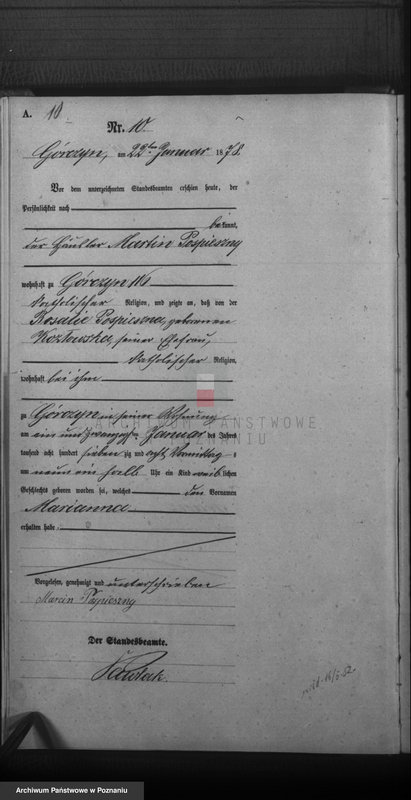 A. 10
Nr. 10
Górczyn, am 22ten Januar 1878.
Vor dem unterzeichneten Standesbeamten erschien heute, der
Persönlichkeit nach
bekannt,
der Häusler Martin Pospieszny
wohnhaft zu Górczyn
katholischer Religion, und zeigte an, daß von der
Rosalie Pospieszna, geborenen
Kozłowska, seiner Ehefrau,
katholischer Religion,
wohnhaft bei ihm
zu Górczyn in seiner Wohnung
ARCHIWUM PAŃSTWOWE
W POZNANIU
am ein und zwanzigsten Januar des Jahres
tausend acht hundert sieben zig und acht Vormittags
um neun ein halb Uhr ein Kind weiblichen
Geschlechts geboren worden sei, welches den Vornamen
Marianna
erhalten habe.
Vorgelesen, genehmigt und unterschrieben
Marcin Pospieszny
Der Standesbeamte.
Archiwum Państwowe w Poznaniu